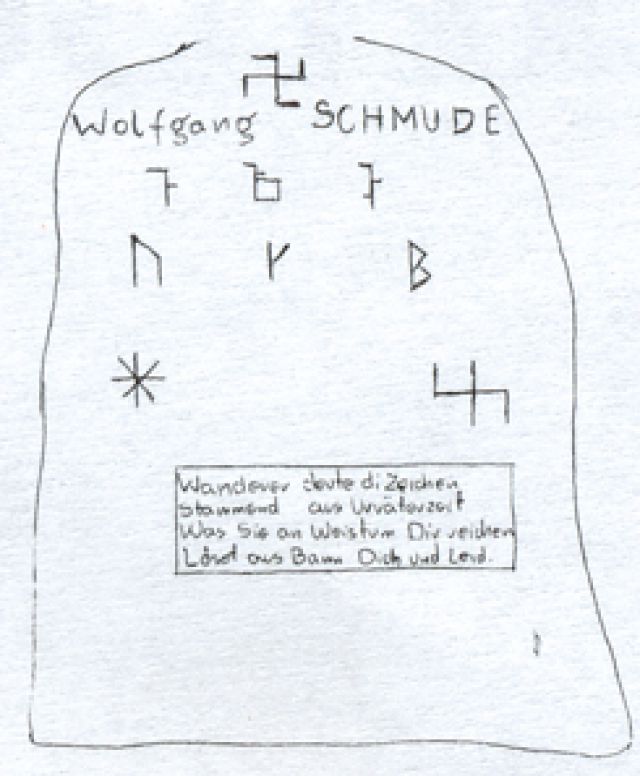 Wolfgang SCHMUDE
ᚢ ᚴ ᛒ
Wanderer deute di Zeichen
Stammend aus Urväterzeit
Was Sie an Weistum Dir reichen
Löset aus Bann Dich und Leid.